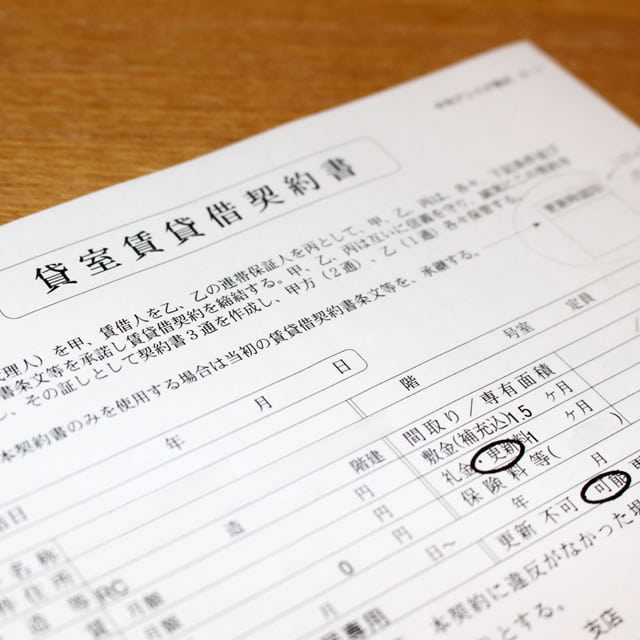 貸室賃貸借契約書
理人）を甲、賃借人を乙、乙の連帯保証人を丙として、甲、乙、丙は、各々、下記条件及び
書条文等を承諾し賃貸借契約を締結する。甲、乙、丙は互いに信義を守り、誠実にこの契約を
し、その証しとして契約書3通を作成し、甲方（2通）、乙（1通）各々保管する。
本契約書のみを使用する場合は当初の賃貸借契約書条文等を、承継する。
年 月 日
階 号室 定員
階建 間取り／専有面積
敷金(補充込)15 ヶ月
造 円 礼金 更新料1 ヶ月
円 保険料等( )
名称 0 円 年 月
件住所 日～ 更新 不可 可能
造等 RC 月額
賃 月額 月
専用 本契約に違反がなかった場
とする。
支店